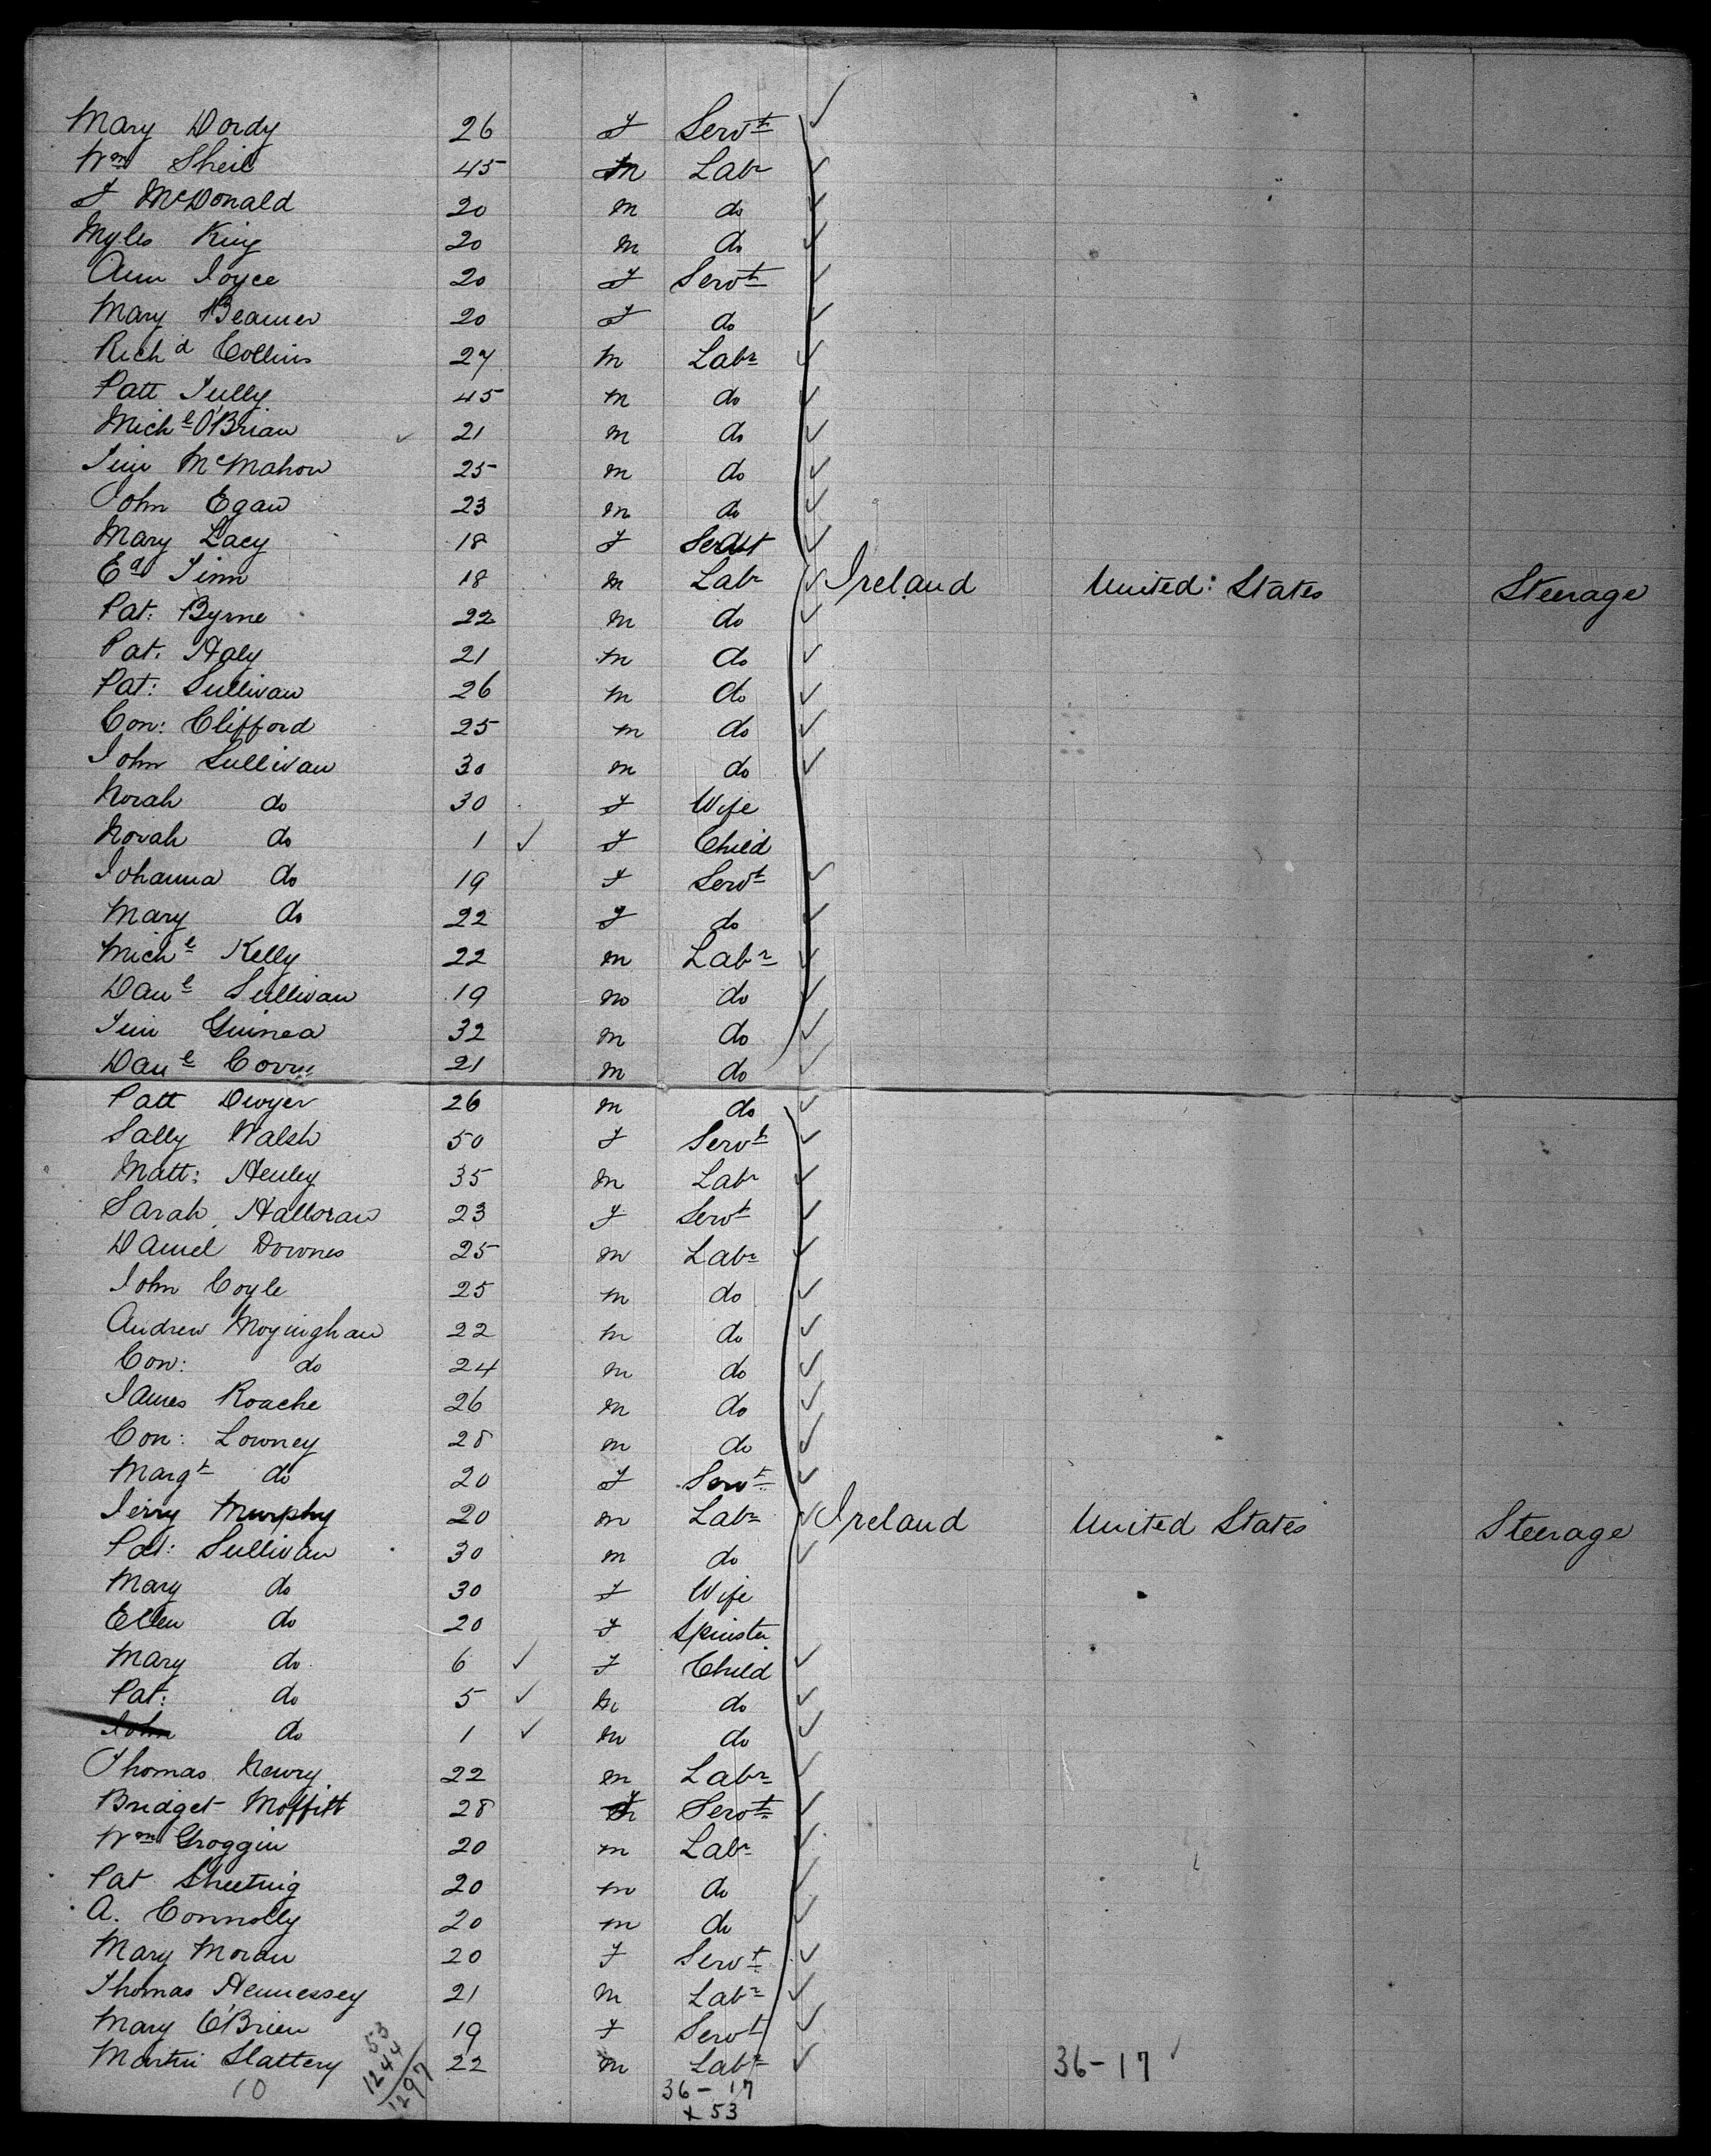 Mary Dordy 26 F Servt
Wm Sheil 45 M Labr
J McDonald 20 m do
Myles King 20 m do
Ann Joyce 20 F Servt
Mary Beamer 20 F do
Richd Collins 27 m Labr
Patt Tully 45 m do
Michl O'Brian 21 m do
Tim McMahon 25 m do
John Egan 23 m do
Mary Lacy 18 F Servt
Ed Finn 18 m Labr Ireland United States Steerage
Pat: Byrne 22 m do
Pat. Haly 21 m do
Pat: Sullivan 26 m do
Con: Clifford 25 m do
John Sullivan 30 m do
Norah do 30 F Wife
Norah do 1 F Child
Johanna do 19 F Servt
Mary do 22 F do
Michl Kelly 22 m Labr
Danl Sullivan 19 m do
Tim Guinea 32 m do
Danl 21 m do
Patt Dwyer 26 m do
Sally Walsh 50 F Servt
Matt: Henley 35 m Labr
Sarah Halloran 23 F Servt
Daniel Downes 25 m Labr
John Coyle 25 m do
Andrew Moyinghan 22 m do
Con: do 24 m do
James Roache 26 m do
Con: Lowney 28 m do
Margt do 20 F Servt
Jerry Murphy 20 m Labr Ireland United States Steerage
Pat: Sullivan 30 m do
Mary do 30 F Wife
Ellen do 20 F Spinster
Mary do 6 F Child
Pat: do 5 m do
John do 1 m do
Thomas Newry 22 m Labr
Bridget Moffitt 28 F Servt
Wm Groggin 20 m Labr
Pat 20 m do
A. Connolly 20 m do
Mary Moran 20 F Servt
Thomas Hennessey 21 m Labr
Mary O'Brien 19 F Servt
Martin Slattery 22 m Labr 36-17
53
1244
1297
10
36 - 17
53